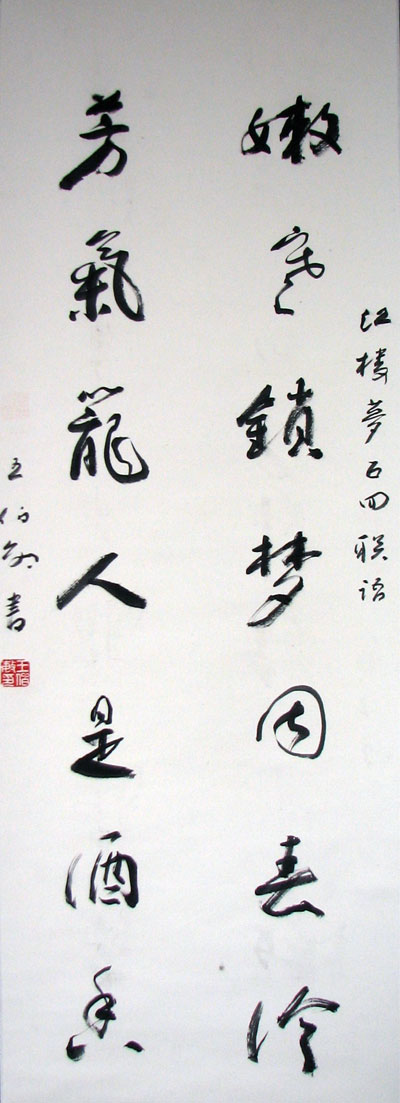 红楼夢五回联语
嫩寒鎖梦因春冷
芳氣籠人是酒香
王伯敏書
王伯敏印